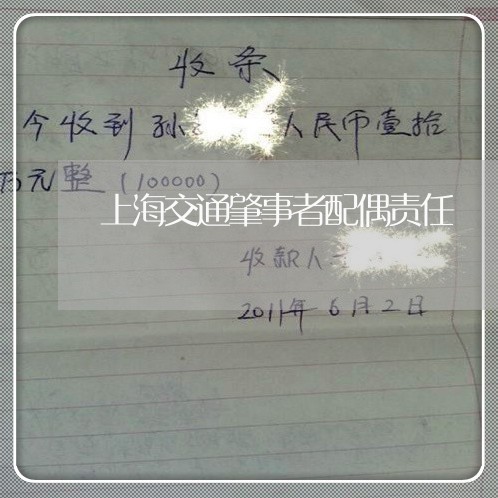 收条
今收到孙 人民币壹拾
万元整(100000)
上海交通肇事者配偶责任
收款人
2011年6月2日